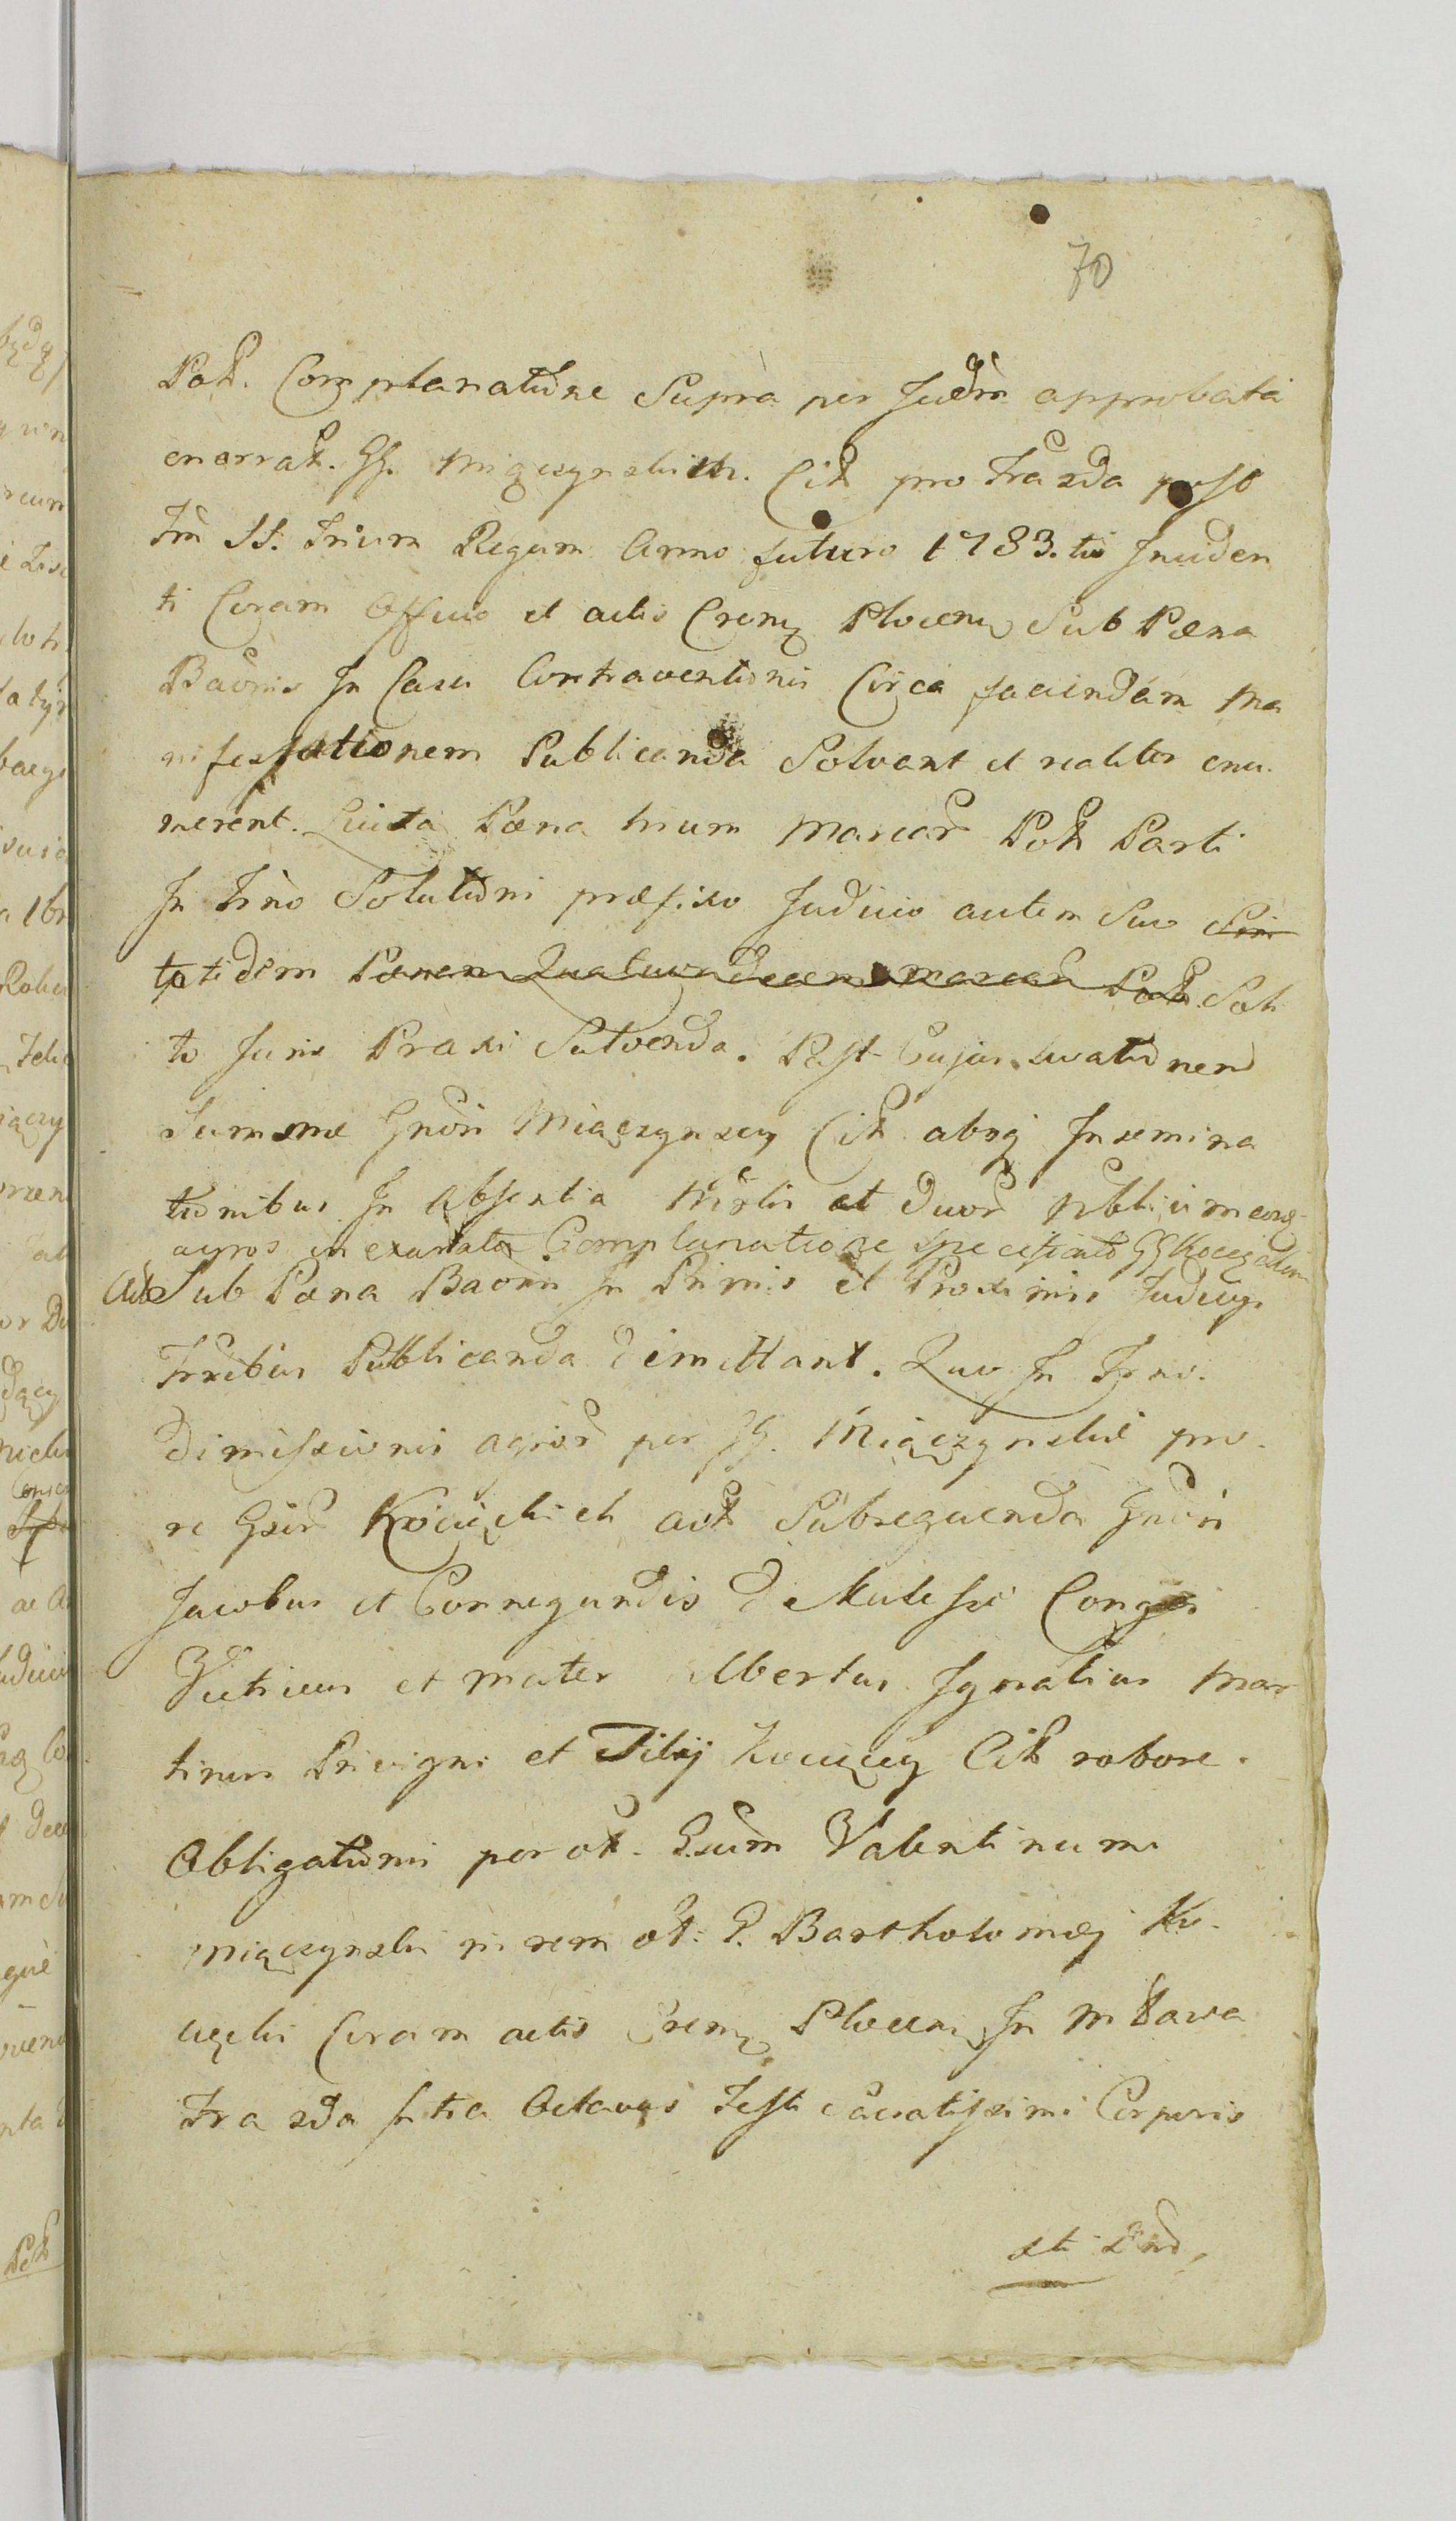 70
Pol. Complanatione Supra per Judm approbata
enarrat. GG. Miączynskich. Cit pro Fra 2da post
Fm SS. Trium Regum Anno futuro 1783. tio Inciden
ti Coram Officio et actis Cren Plocen Sub Pæna
Baonis In Casu Contraventionis Circa faciendam Ma
nifestationem Publicanda Solvant et realiter enu-
merent. Luita Pæna trium Marcar Pol Parti
In Frno Solutioni præfixo Judicio autem Suo Sim
totidem Pænam Quatuordecem marcar Pol. Soli
to Juris Praxi Solvenda. Post Cujus levationem
Summæ Gnosi Miączynscy Cit absq Insemina
tionibus In Absentia Mrlis et duor Nobilium eosq
agros in exarata Complanatione specificato GG Kocięckim
Cit Sub Pæna Baonis In Primis et Proximis Judicys
Frribus Publicanda dimittant. Quo In Frno.
Dimissionis agror per GG. Miączynskie pro-
re Gsor Kocięckich act Subsequenda Gnosi
Jacobus et Connegundis de Conges
Victricus et mater Albertus Ignatius Mar
tinus Privigni et Filij Kocięcy Cit robore.
Obligationis per ol. Gsum Valentinum
Miączynski in rem ol: G. Bartholomæj Ko-
cięcki Coram actis Cren Plocen In Mlawa
Fra 2da In tra Octavas Festi Sacratissimi Corporis